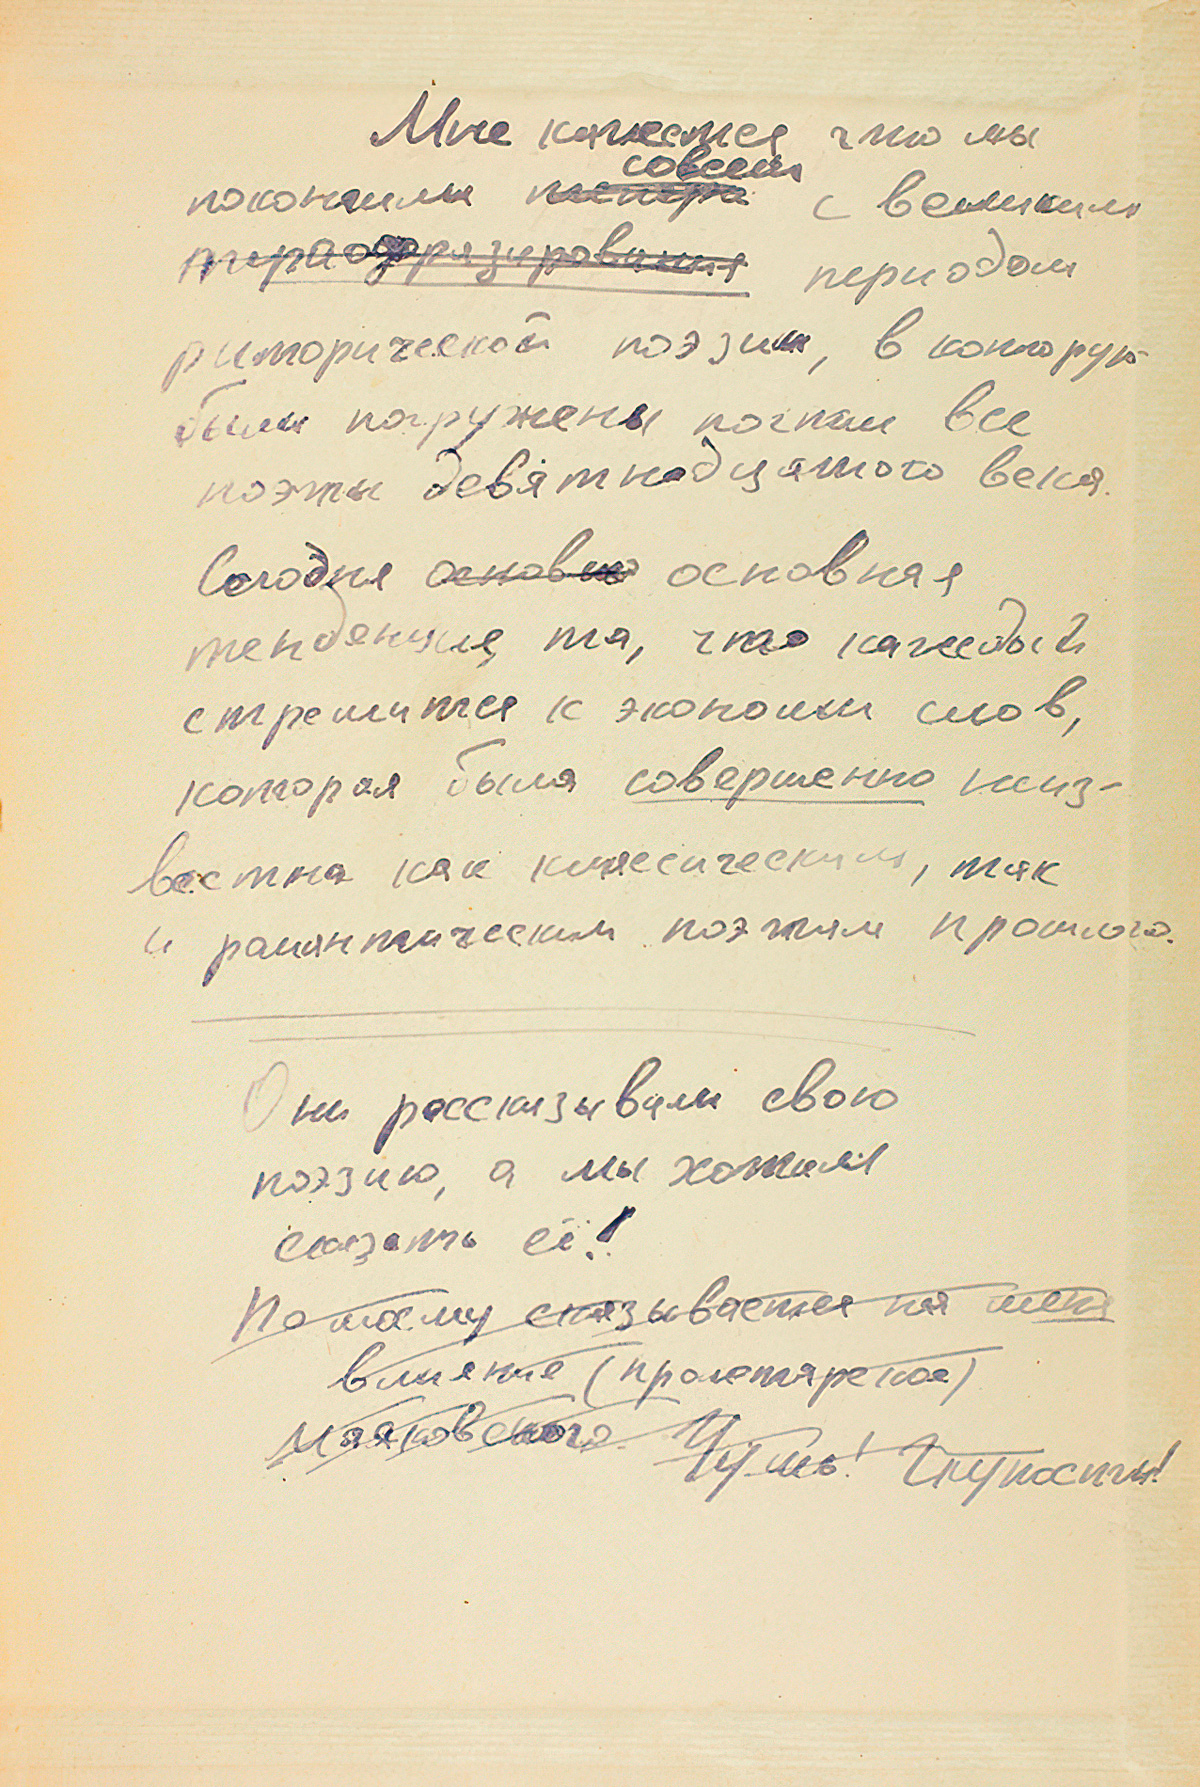 Мне кажется что мы
совсем
покончили теперь с великим
перафразирования периодом
риторической поэзии, в которую
были погружены почти все
поэты девятнадцатого века.
Сегодня основно основная
тенденция та, что каждый
стремится к экономии слов,
которая была совершенно неиз-
вестна как классическим, так
и романтическим поэтам прошлого.
Они рассказывали свою
поэзию, а мы хотим
сказать её!
По моему сказывается на меня
влияние (пролетарское)
Маяковского. Чушь! Глупость!